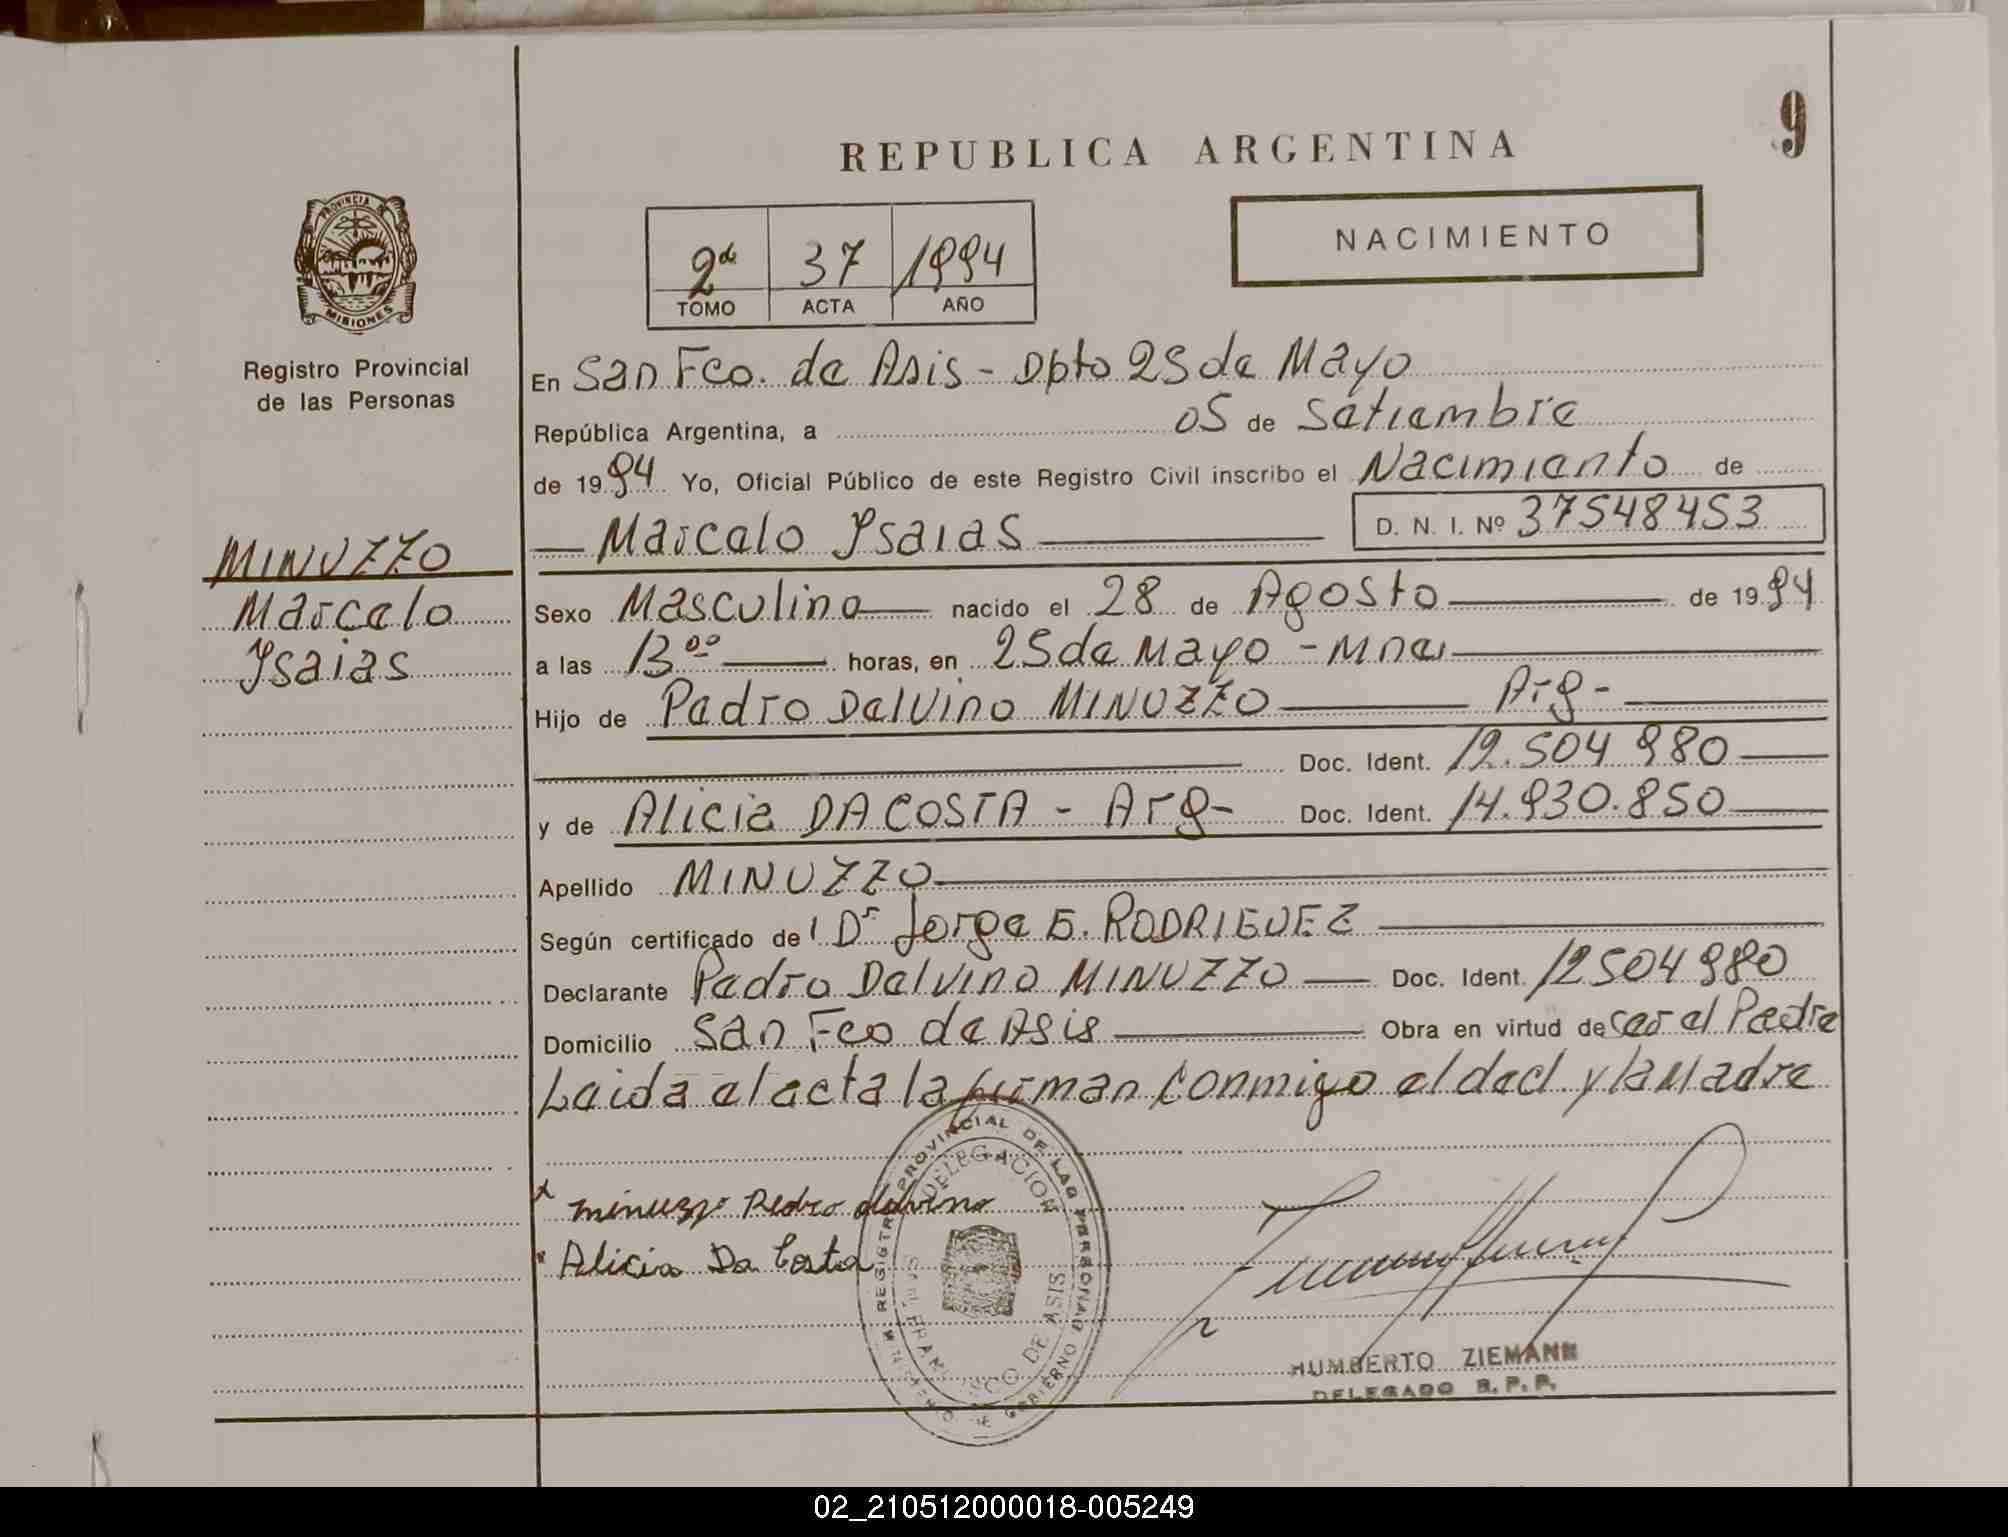 9
REPUBLICA ARGENTINA
PROVINCIA DE
MISIONES
Registro Provincial
de las Personas
2do 37 1994
TOMO ACTA AÑO
NACIMIENTO
En San Fco. de Asis - Dpto 25 de Mayo
República Argentina, a 05 de Setiembre
de 1994 Yo, Oficial Público de este Registro Civil inscribo el Nacimiento de
Marcelo Ysaias D. N. I. Nº 37548453
MINUZZO
Marcelo
Ysaias
Sexo Masculino nacido el 28 de Agosto de 1994
a las 13 00 horas, en 25 de Mayo - Mnes
Hijo de Pedro Delvino MINUZZO Arg-
Doc. Ident. 12.504.980
y de Alicia DA COSTA - Arg- Doc. Ident. 14.930.850
Apellido MINUZZO
Según certificado de Dr Jorge E. RODRIGUEZ
Declarante Pedro Delvino MINUZZO Doc. Ident. 12504980
Domicilio San Fco de Asis Obra en virtud de ser el Padre
Leida el acta la firman conmigo el decl y la Madre
x Minuzzo Pedro delvino
x Alicia Da Costa
REGISTRO PROVINCIAL DE LAS PERSONAS
DELEGACION
SAN FRANCISCO DE ASIS
MINISTERIO DE GOBIERNO
HUMBERTO ZIEMANN
DELEGADO R. P. P.
02_210512000018-005249